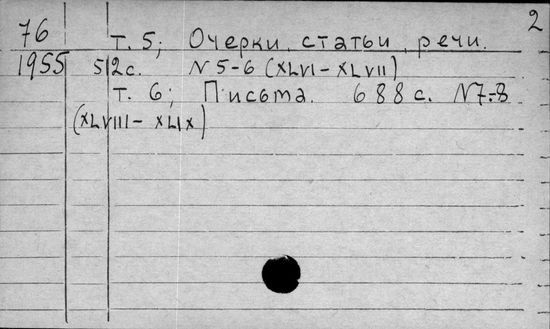 2
76 т. 5; Очерки, статьи, речи.
1955 512 с. N 5-6 (XLVI - XLVII)
т. 6; Письма. 688 с. N 7-8
(XLVIII - XLIX)